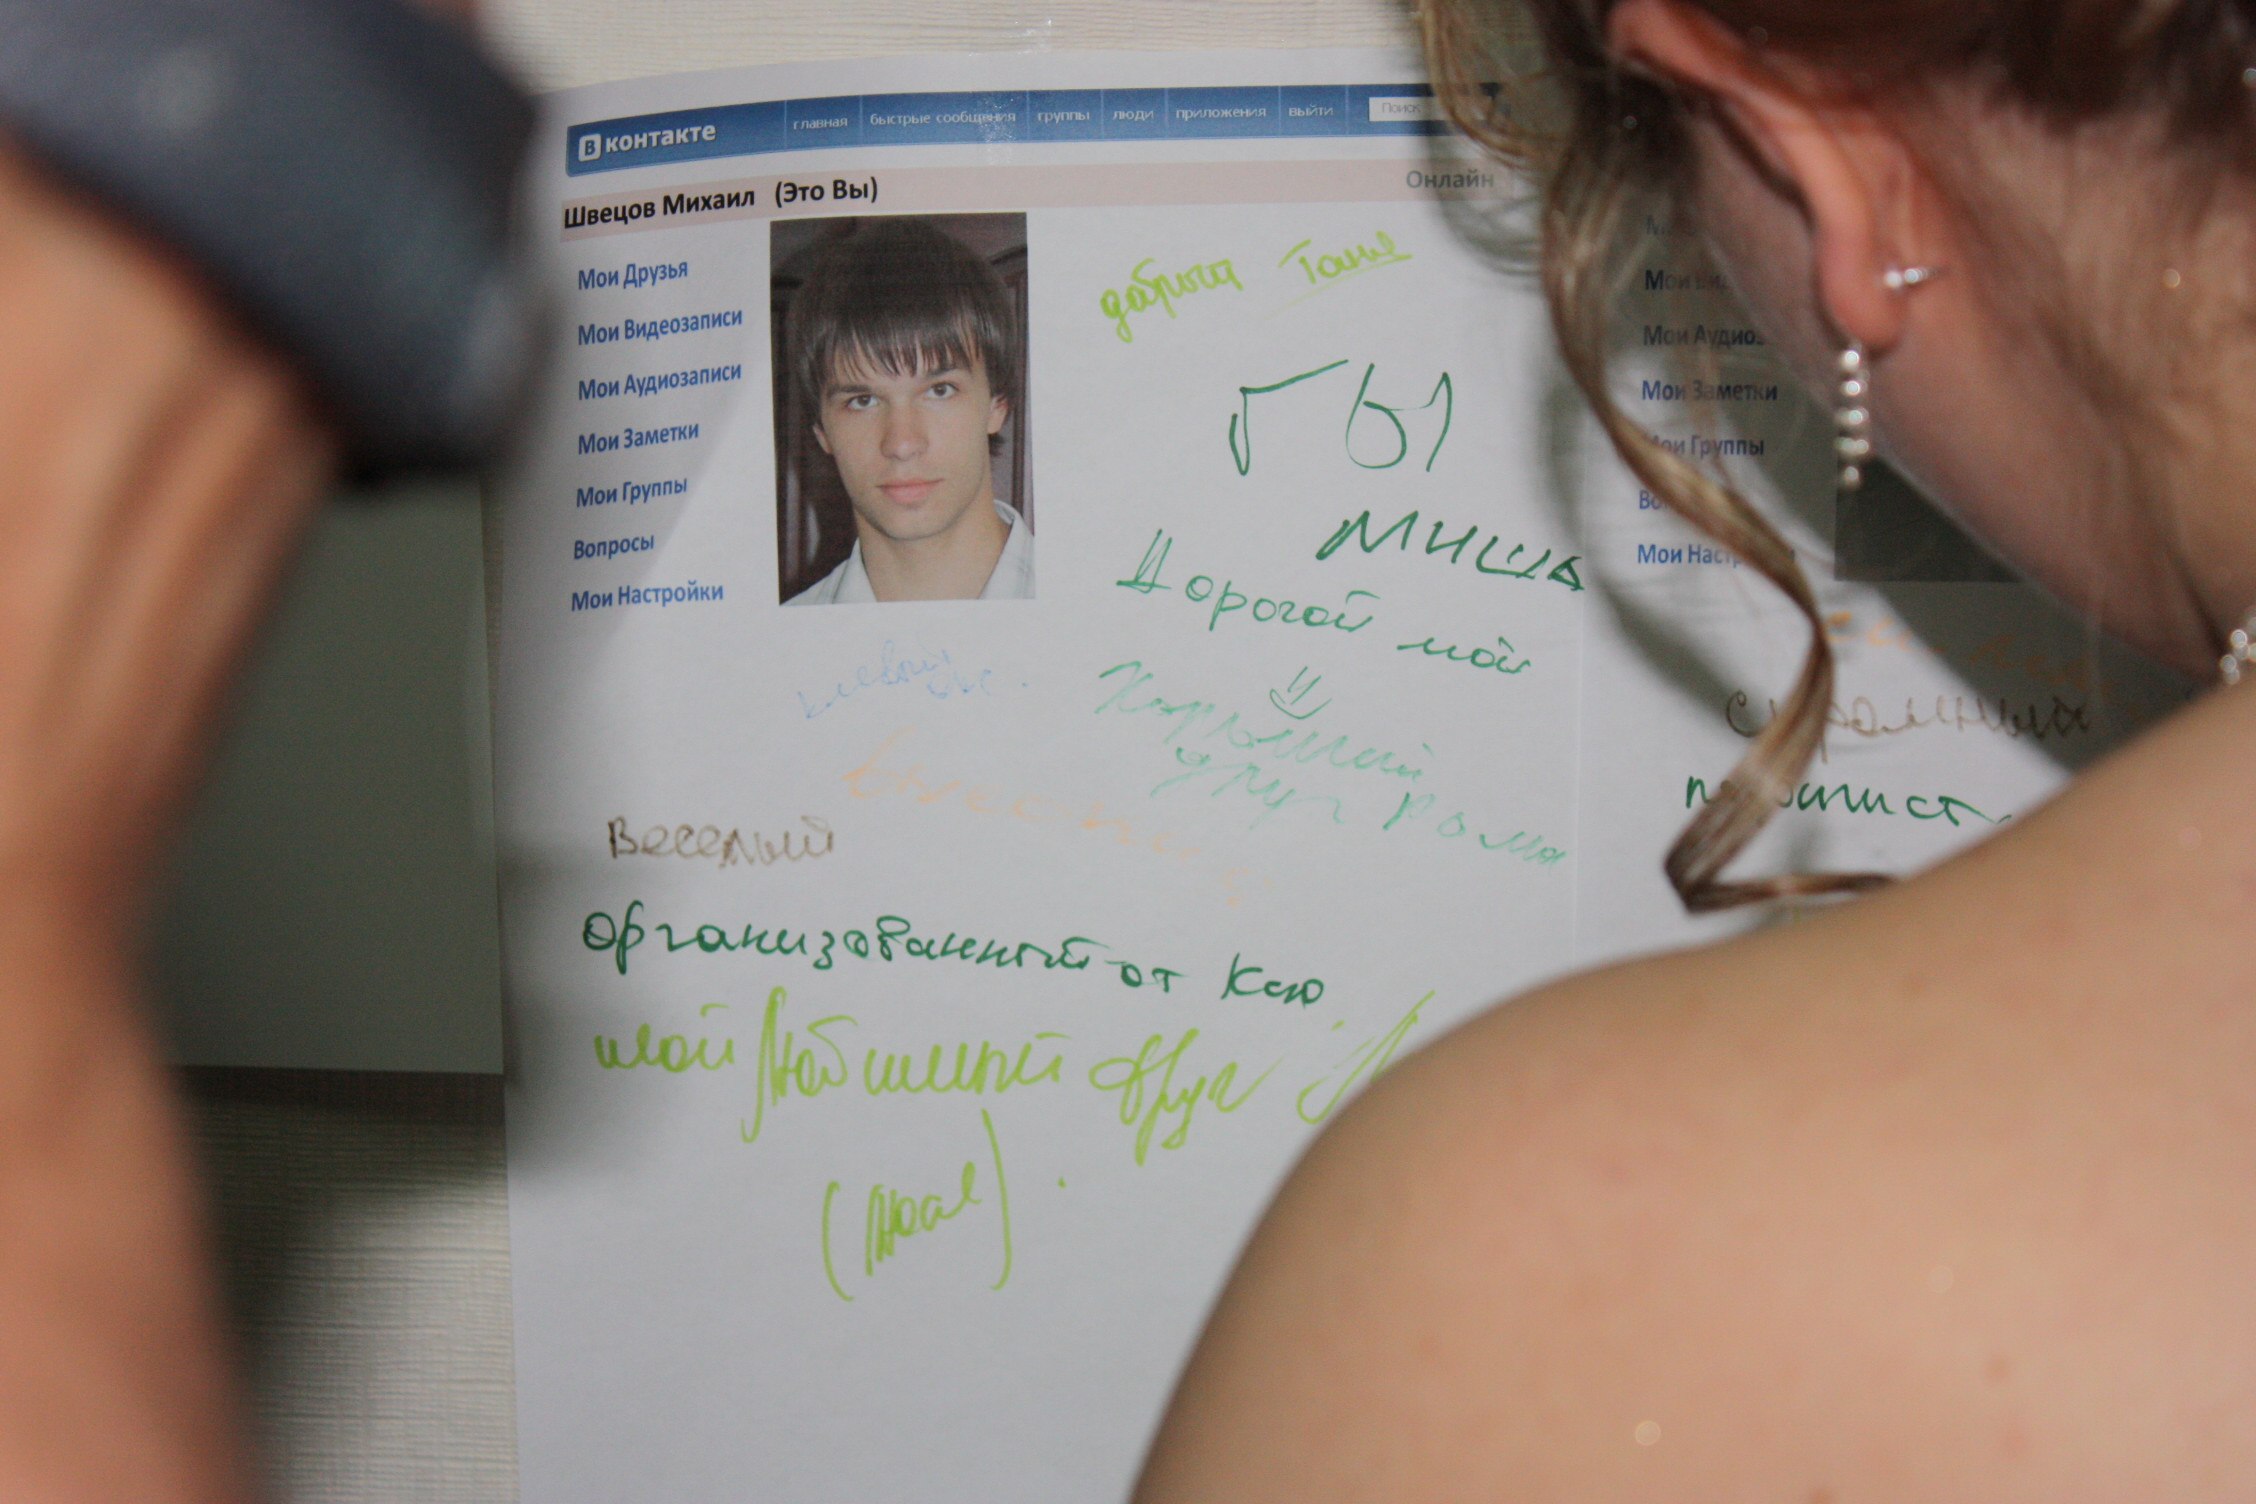 В контакте главная быстрые сообщения группы люди приложения выйти Поиск
Швецов Михаил (Это Вы) Онлайн
Мои Друзья
Мои Видеозаписи
Мои Аудиозаписи
Мои Заметки
Мои Группы
Вопросы
Мои Настройки
добрый Таня
ГЫ
Миша
Дорогой мой
Хороший
друг Рома
Веселый
Организованный от Ксю
мой Любимый друг
Мои Аудио
Мои Заметки
Мои Группы
Мои Наст
Скромный